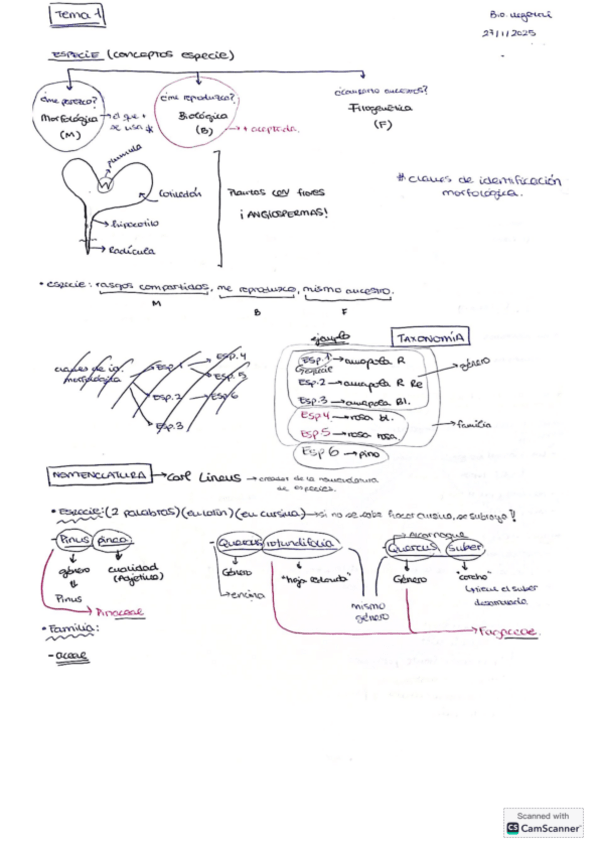 Tema 1
Bio. vegetal
27/11/2025
ESPECIE (conceptos especie)
¿me parezco?
Morfológica
(M)
→ el que +
se usa
¿me reproduzco?
Biológica
(B)
→ + aceptada.
¿comparto ancestros?
Filogenética
(F)
Plúmula
Cotiledón
Hipocotilo
Radícula
Plantas con flores
¡ANGIOSPERMAS!
# claves de identificación
morfológica.
• especie: rasgos compartidos, me reproduzco, mismo ancestro.
M B F
claves de id.
morfológica
Esp. 1
Esp. 2
Esp. 3
Esp. 4
Esp. 5
Esp 6
ejemplo
TAXONOMÍA
Esp. 1 → amapola R
Esp. 2 → amapola R Re
Esp. 3 → amapola Bl.
→ género
Esp 4 → rosa bl.
Esp 5 → rosa rosa.
→ familia
Esp 6 → pino
NOMENCLATURA → Carl Lineus → creador de la nomenclatura
de especies.
• Especie: (2 palabras) (en latín) (en cursiva) → si no se sabe hacer cursiva, se subraya!
- Pinus pinea
género
Pinus
cualidad
(Adjetivo)
→ Pinaceae
- Quercus rotundifolia
Género
→ encina
"hoja redonda"
mismo
género
→ Alcornoque
Quercus suber
Género
"corcho"
→ Fagaceae.
• Familia:
- aceae
Scanned with
CS CamScanner